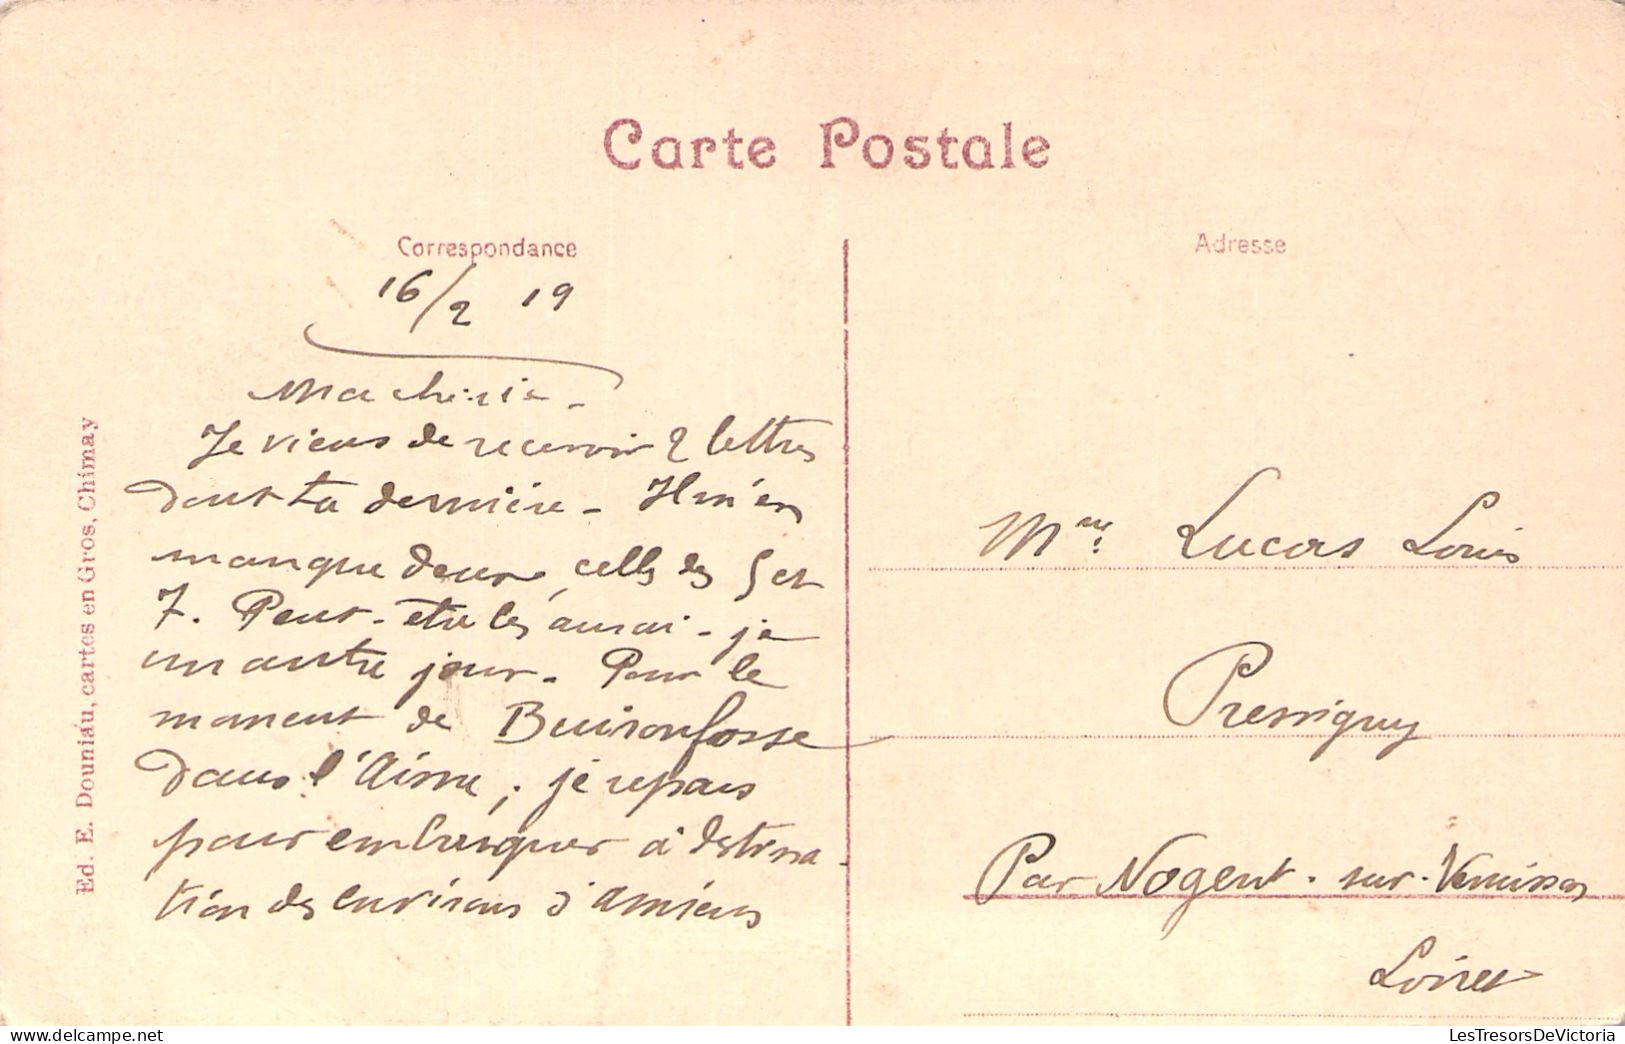 Carte Postale
Correspondance
16/2 19
Ma chérie -
Je viens de recevoir 2 lettres
dont ta dernière - Il m'en
manque deux, celles des 5 et
7. Peut-être les aurai-je
un autre jour. Pour le
moment de Buironfosse
dans l'Aisne, je repars
pour embarquer à destina-
tion des environs d'Amiens
Adresse
Mme Lucas Louis
Pressigny
Par Nogent-sur-Vernisson
Loiret
Ed. E. Douniau, cartes en Gros, Chimay
LesTresorsDeVictoria